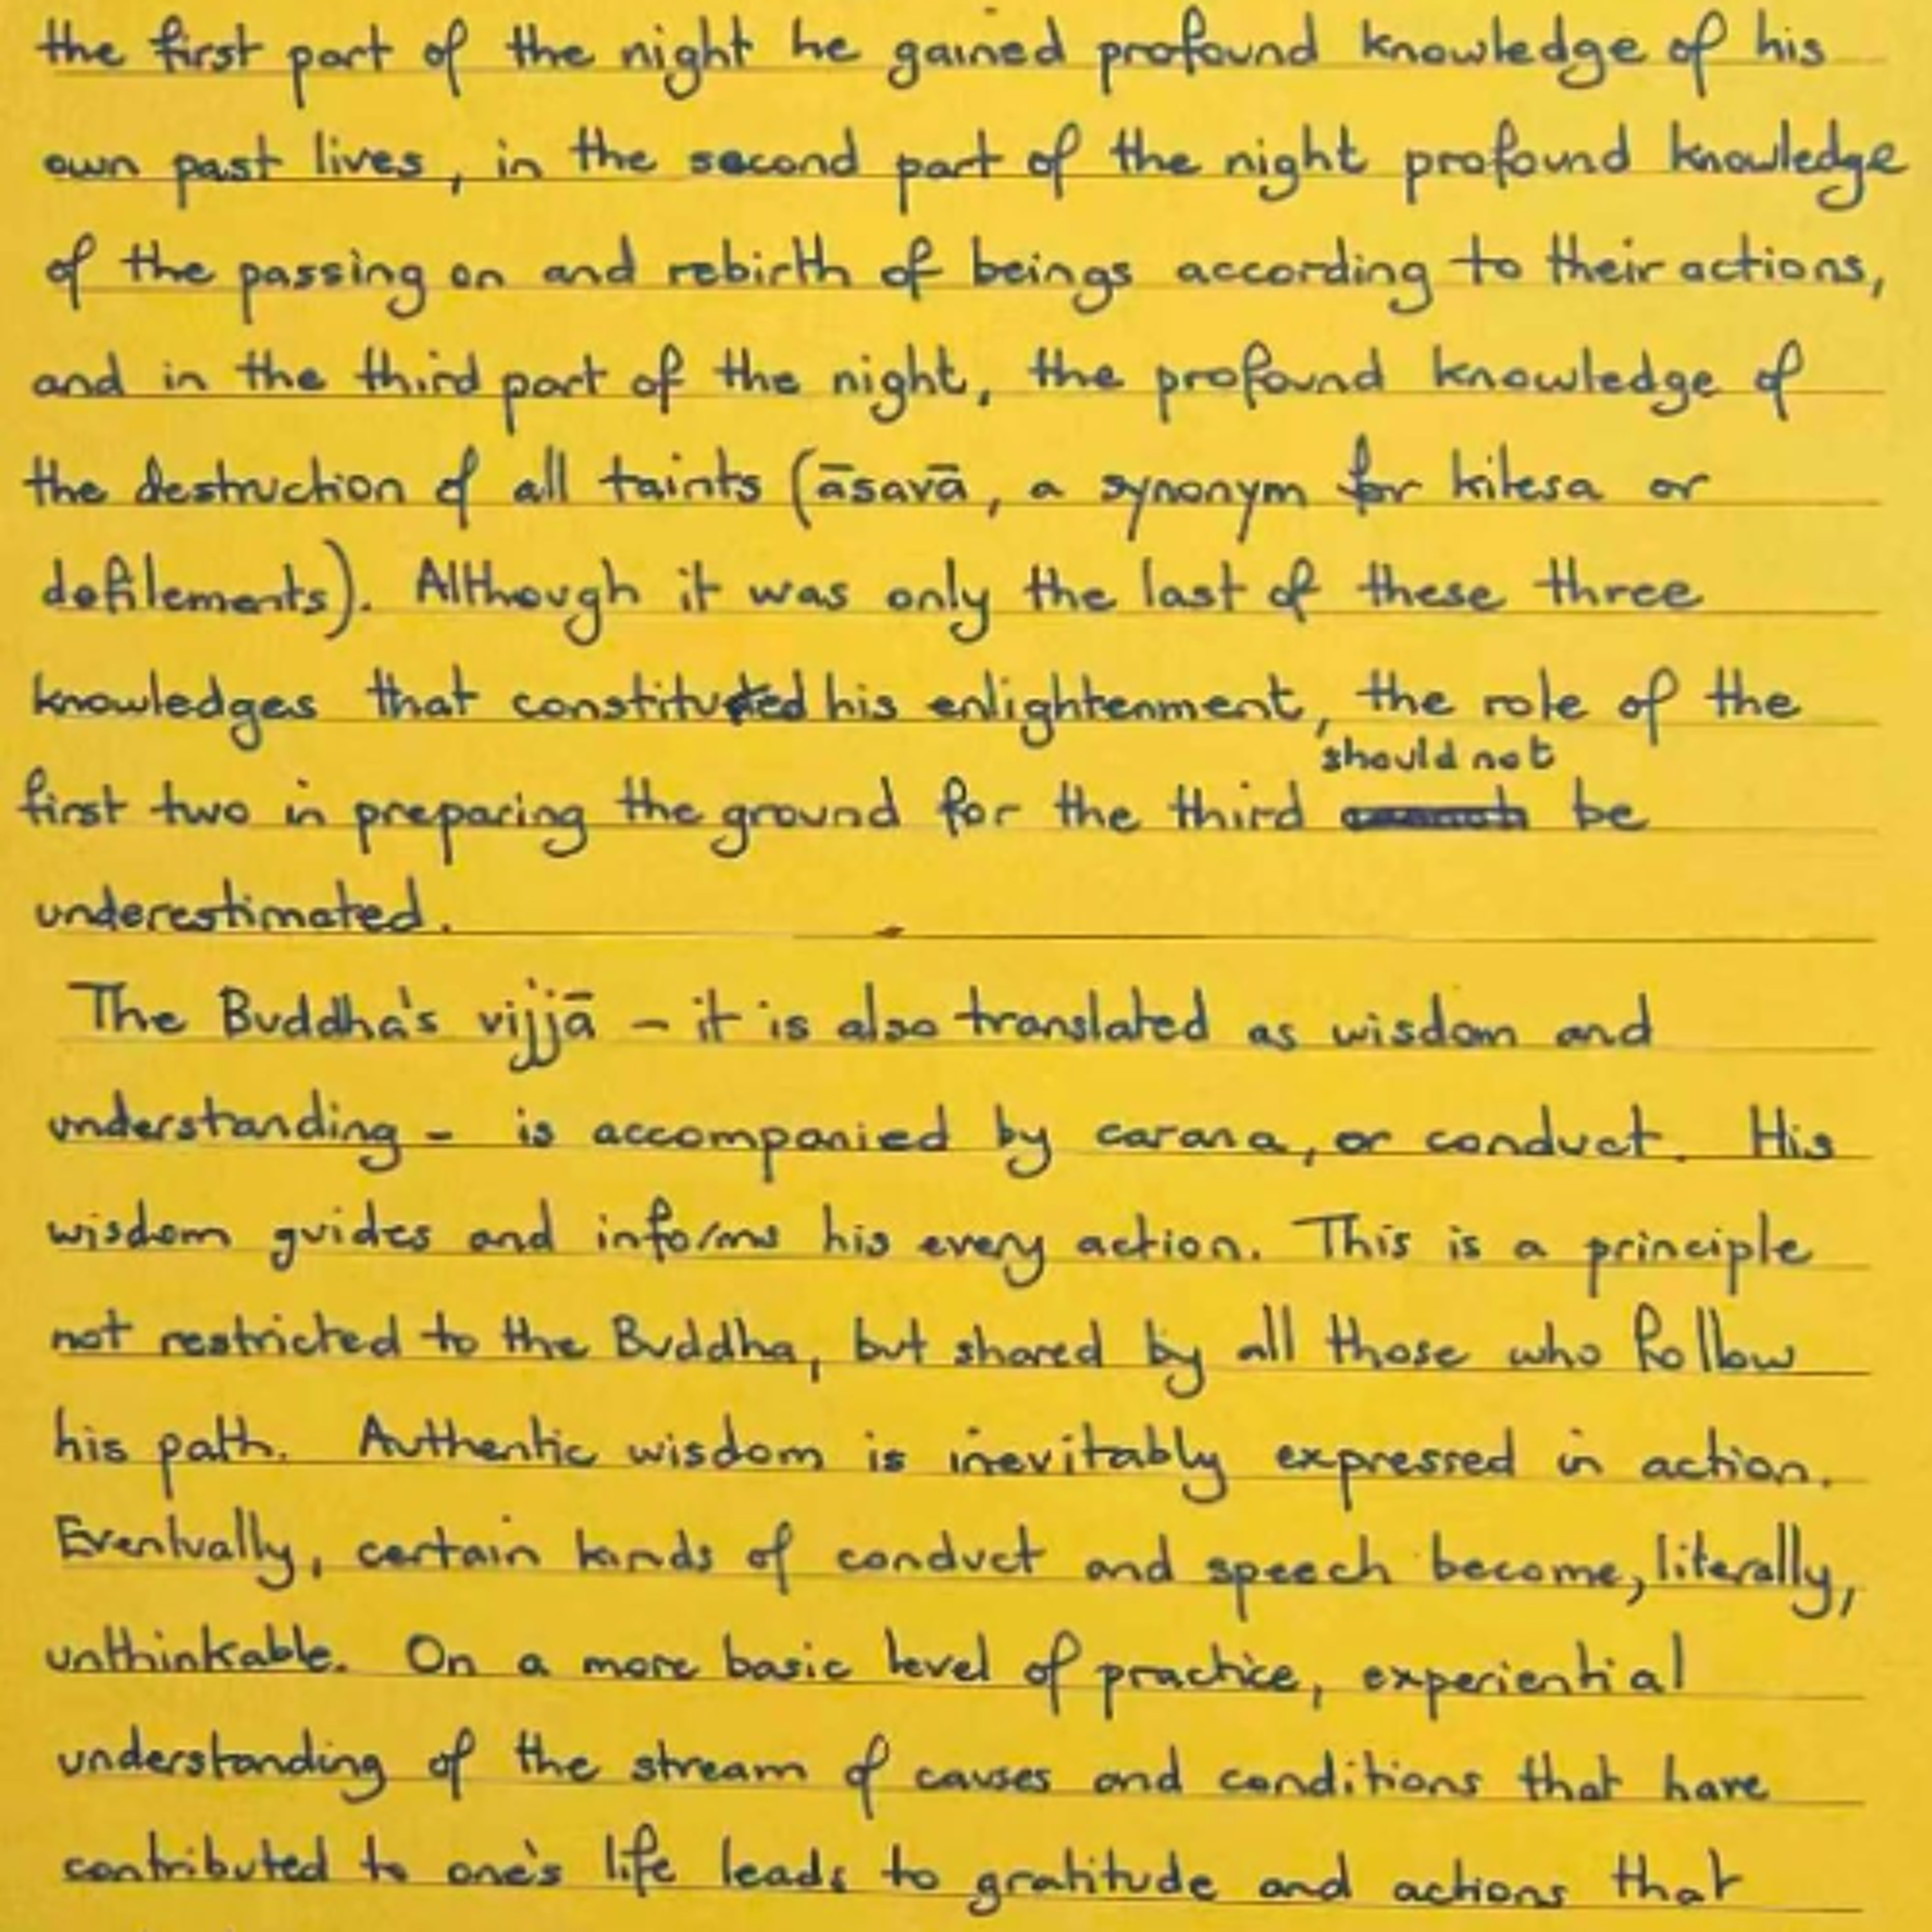 the first part of the night he gained profound knowledge of his
own past lives, in the second part of the night profound knowledge
of the passing on and rebirth of beings according to their actions,
and in the third part of the night, the profound knowledge of
the destruction of all taints (āsavā, a synonym for kilesa or
defilements). Although it was only the last of these three
knowledges that constituted his enlightenment, the role of the
should not
first two in preparing the ground for the third be
underestimated.
The Buddha's vijjā – it is also translated as wisdom and
understanding – is accompanied by carana, or conduct. His
wisdom guides and informs his every action. This is a principle
not restricted to the Buddha, but shared by all those who follow
his path. Authentic wisdom is inevitably expressed in action.
Eventually, certain kinds of conduct and speech become, literally,
unthinkable. On a more basic level of practice, experiential
understanding of the stream of causes and conditions that have
contributed to one's life leads to gratitude and actions that